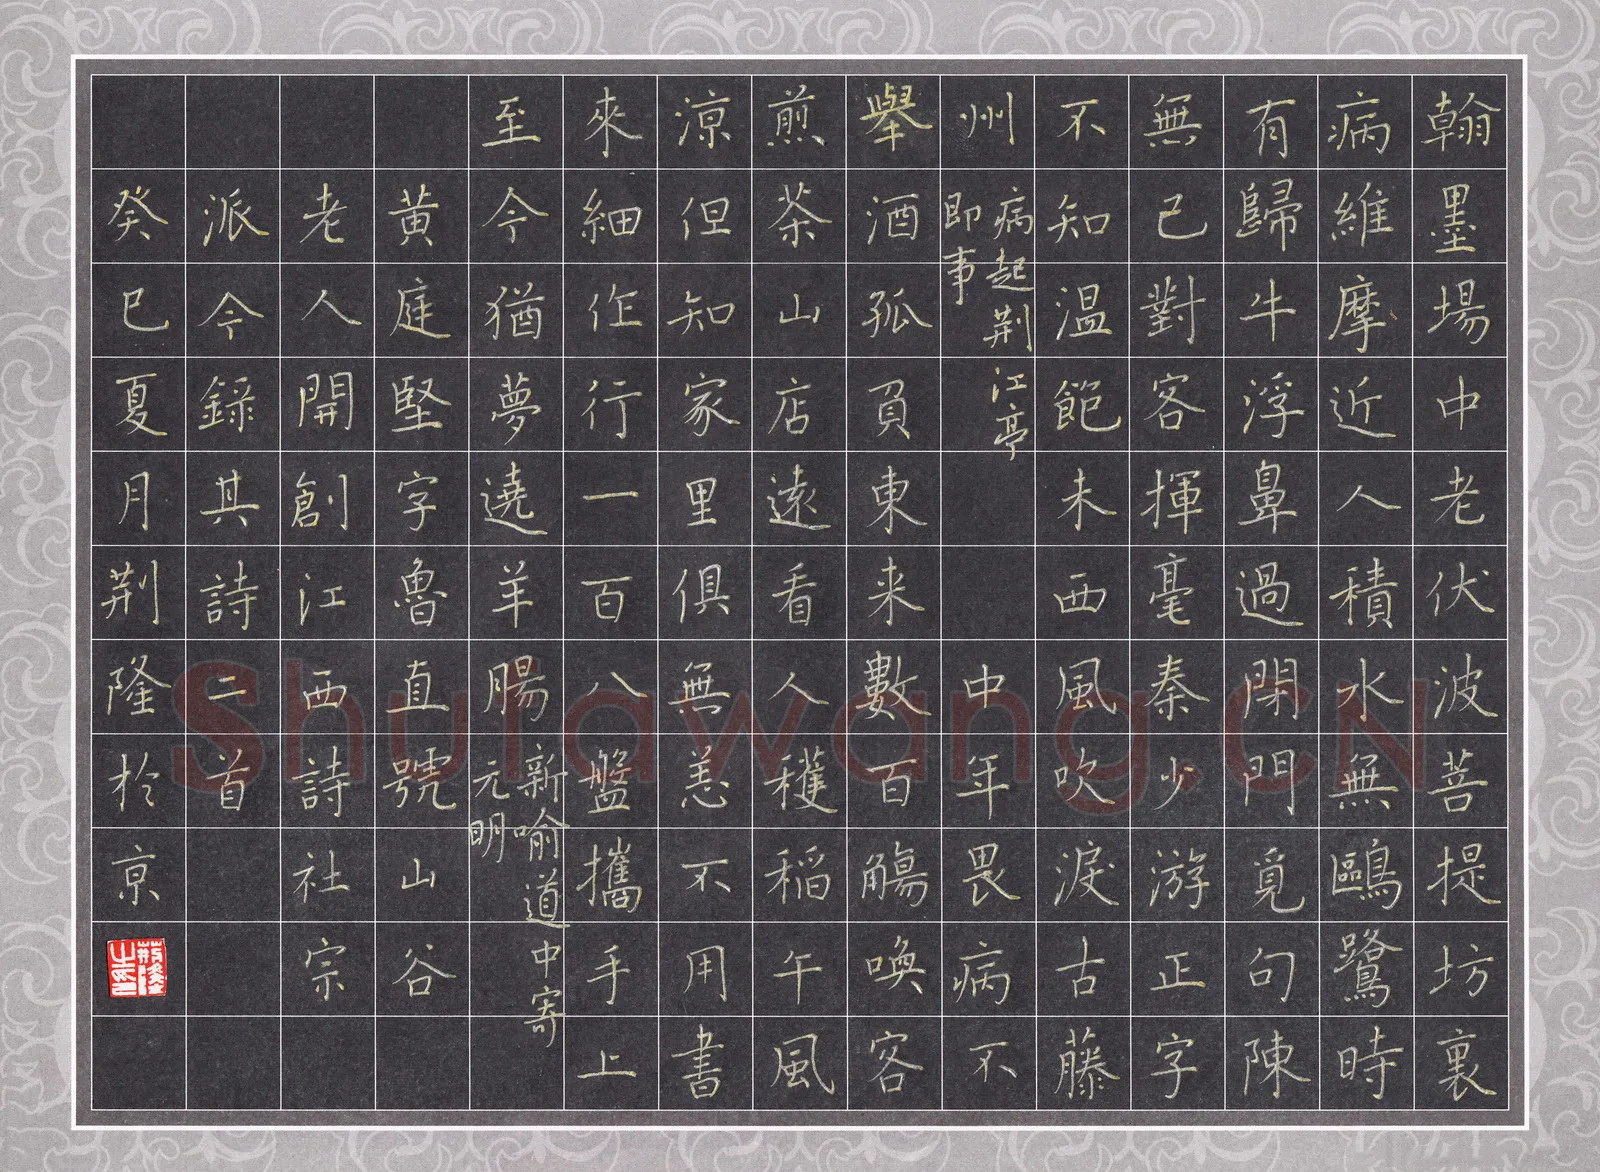 翰墨場中老伏波菩提坊裏
病維摩近人積水無鷗鷺時
有歸牛浮鼻過閉門覓句陳
無己對客揮毫秦少游正字
不知溫飽未西風吹淚古藤
州
病起荆江亭
即事
中年畏病不
舉酒孤負東来數百觴喚客
煎茶山店遠看人穫稻午風
涼但知家里俱無恙不用書
來細作行一百八盤攜手上
至今猶夢遶羊腸
新喻道中寄
元明
黃庭堅字魯直號山谷
老人開創江西詩社宗
派今錄其詩二首
癸巳夏月荆隆於京
荆隆之印
Shufawang.CN